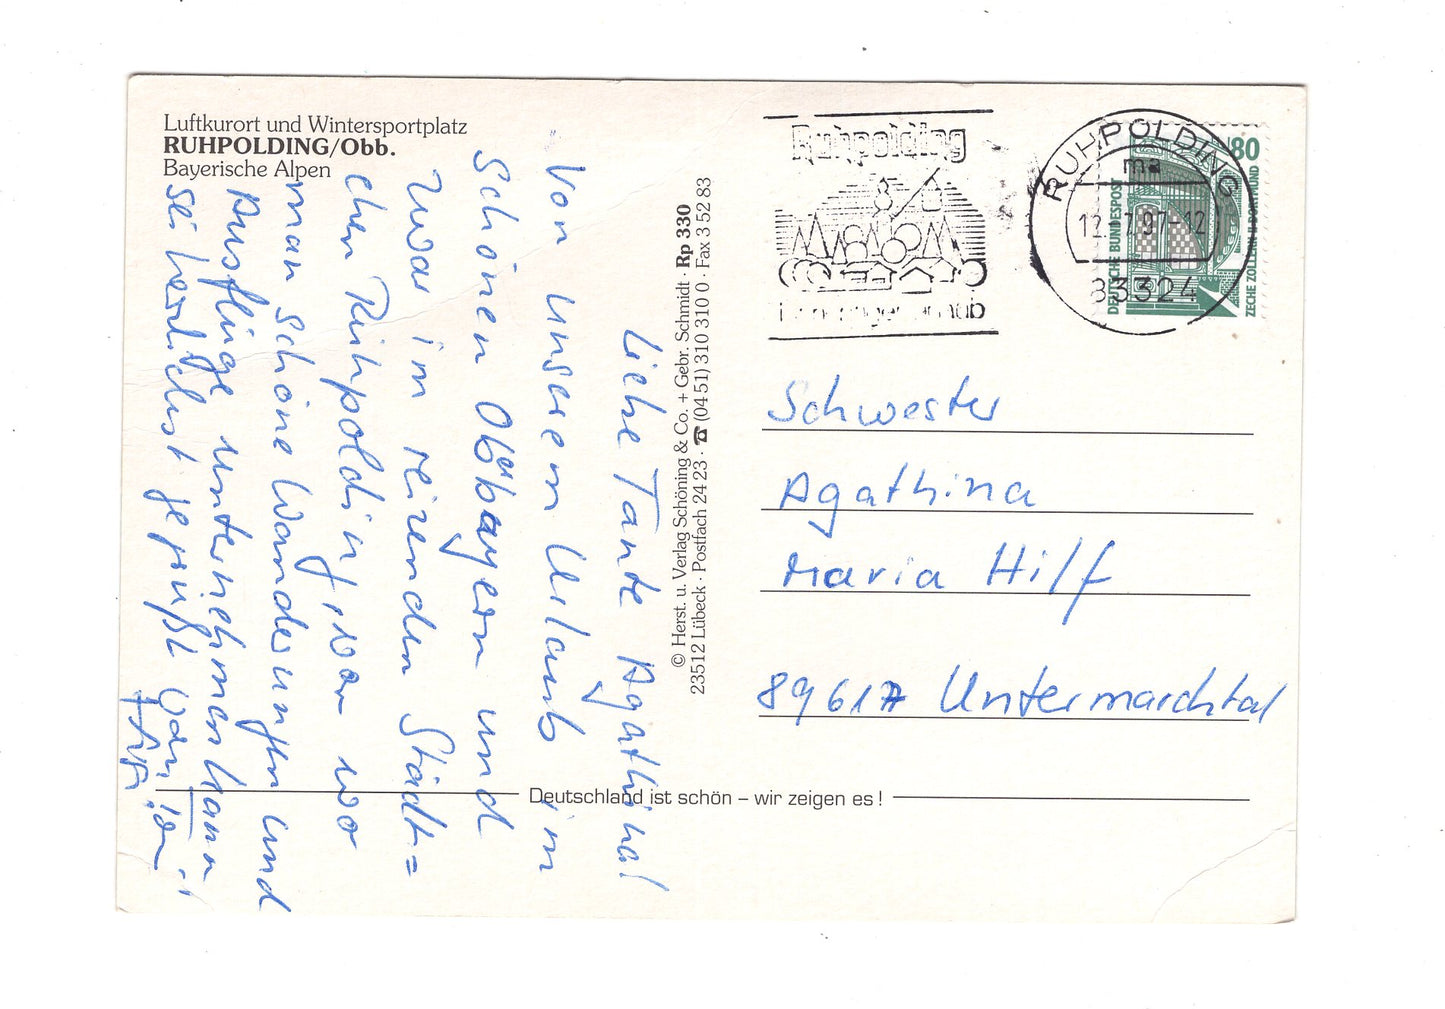 Luftkurort und Wintersportplatz
RUHPOLDING/Obb.
Bayerische Alpen
Liebe Tante Agathina!
Von unserem Urlaub im
schönen Oberbayern und
zwar im reizenden Städt=
chen Ruhpolding, von wo
man schöne Wanderungen und
Ausflüge unternehmen kann
sei herzlichst gegrüßt von
© Herst. u. Verlag Schöning & Co. + Gebr. Schmidt · Rp 330
23512 Lübeck · Postfach 24 23 · ☎ (04 51) 310 310 0 · Fax 3 52 83
Ruhpolding
RUHPOLDING
ma
12.-7.97-12
83324
80
DEUTSCHE BUNDESPOST
Schwester
Agathina
Maria Hilf
89617 Untermarchtal
Deutschland ist schön – wir zeigen es !